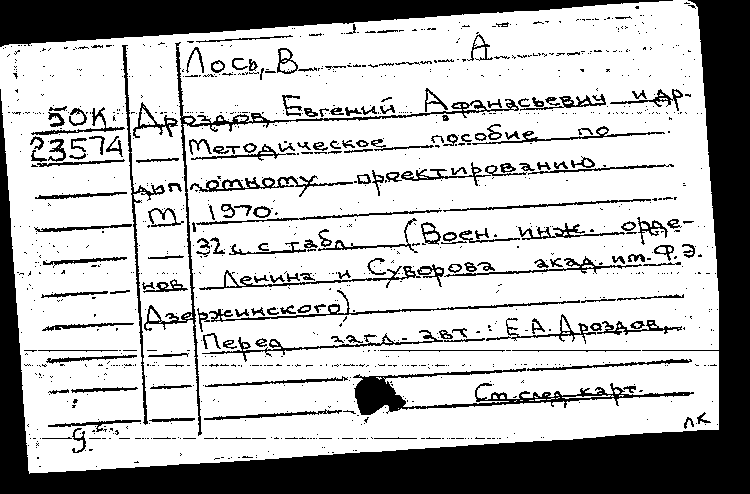 Лось, В А
50К. Дроздов, Евгений Афанасьевич и др.
23574 Методическое пособие по
дипломному проектированию.
М 1970.
32 с. с табл. (Воен. инж. орде-
нов Ленина и Суворова акад. им. Ф.Э.
Дзержинского).
Перед загл. авт.: Е.А. Дроздов,
См. след. карт.
9.
лк